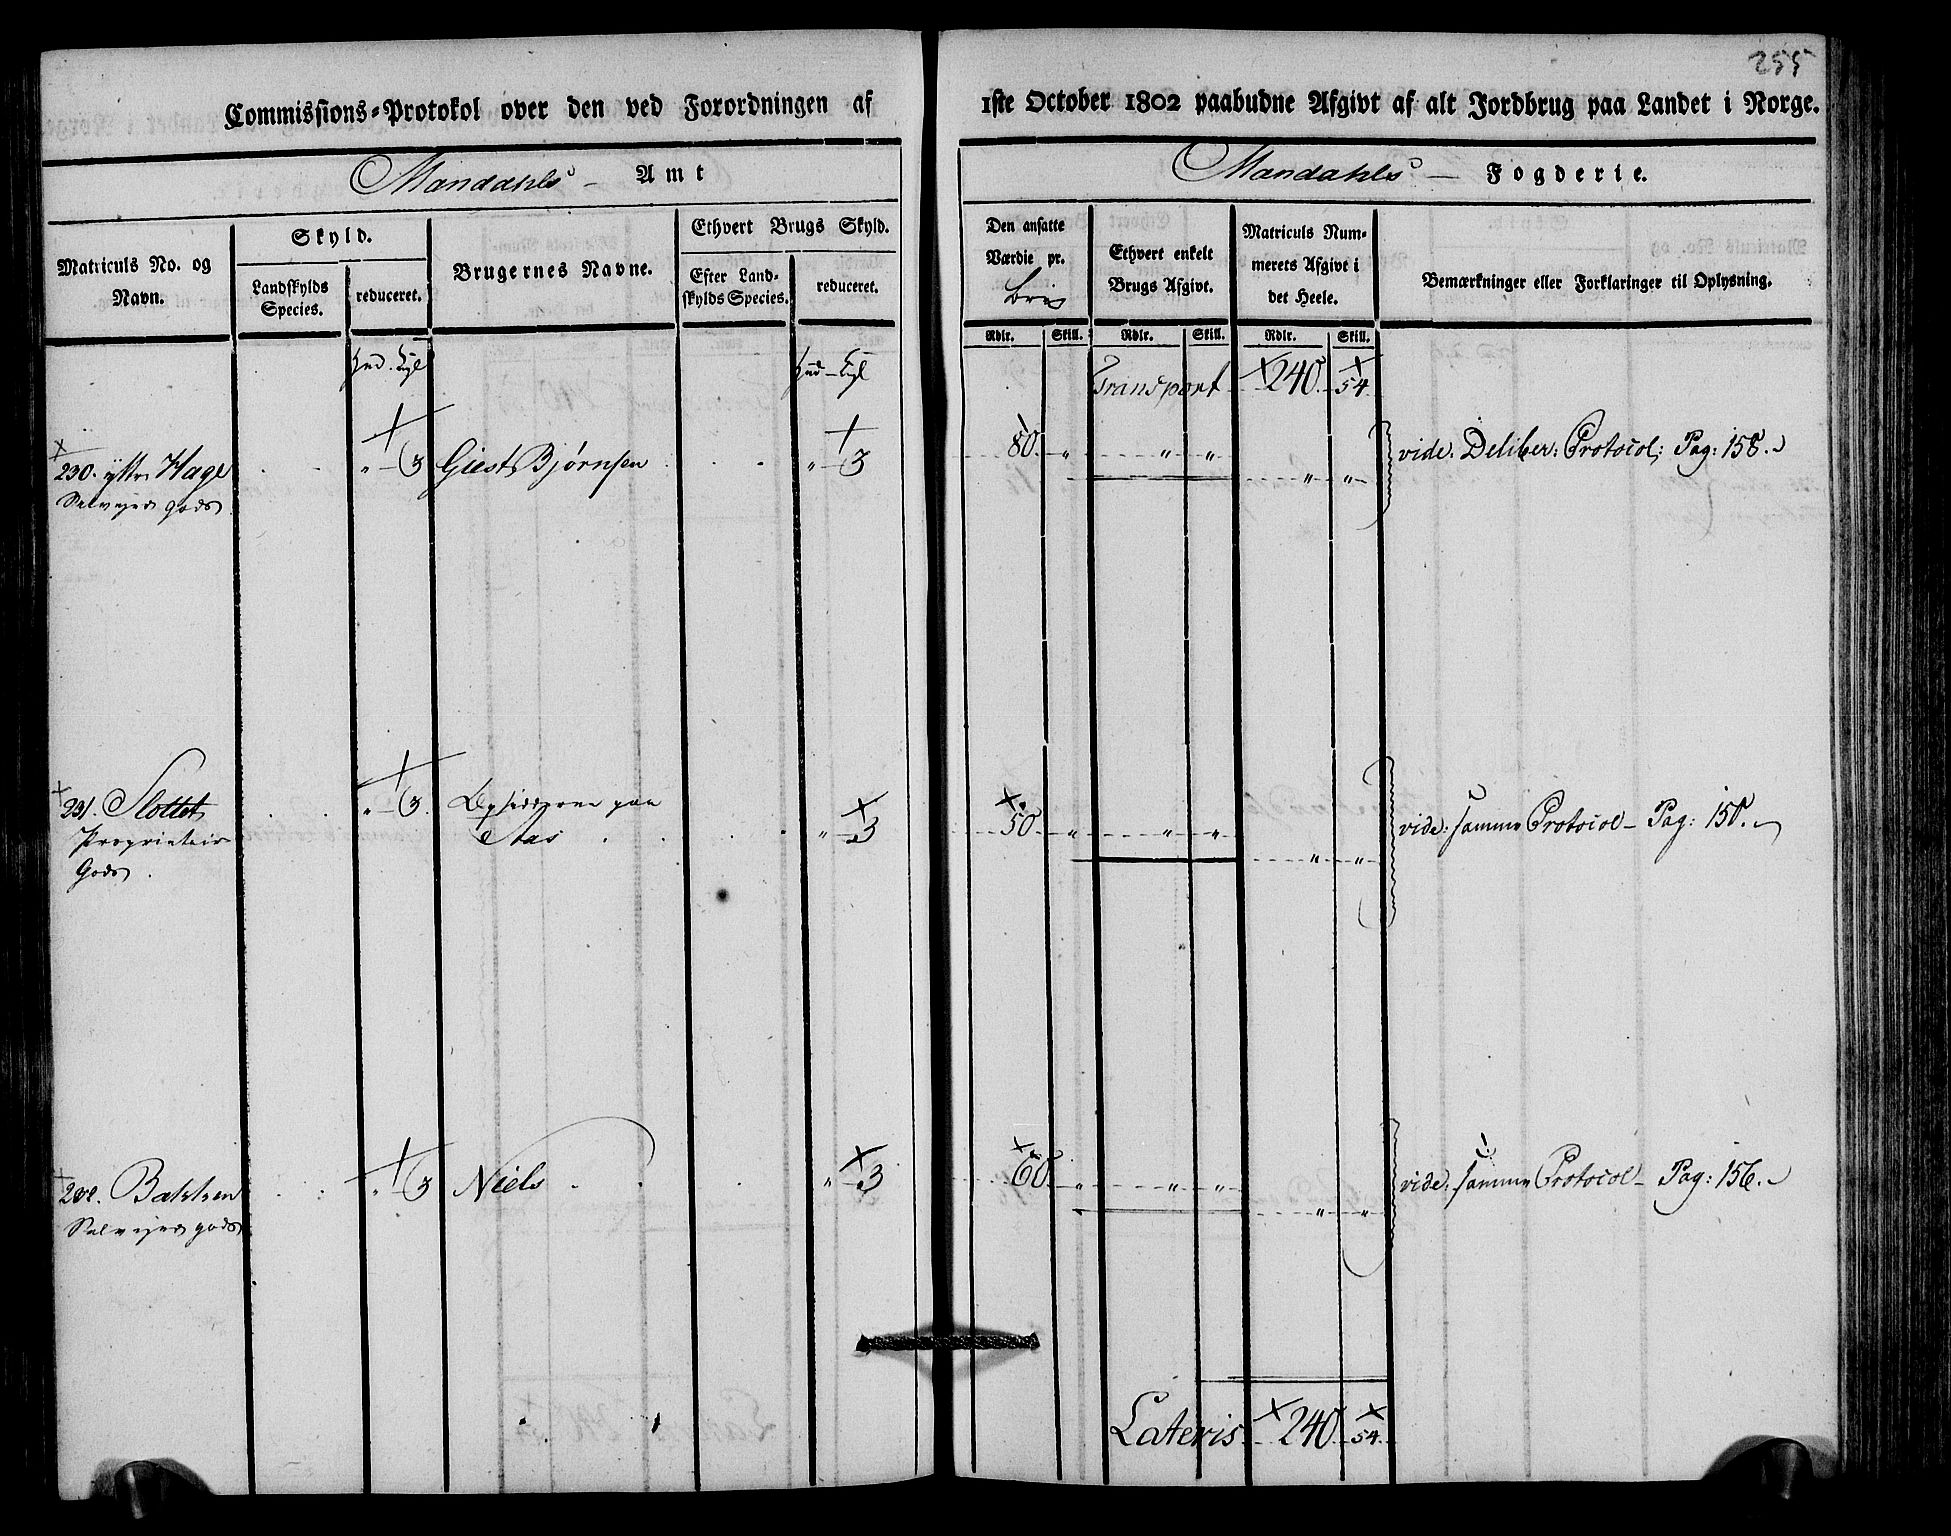 255
Commissions-Protokol over den ved Forordningen af 1ste October 1802 paabudne Afgivt af alt Jordbrug paa Landet i Norge.
Mandahls Amt
Mandahls Fogderie.
Matriculs No. og Navn.
Skyld.
Landskylds Species.
reduceret.
Brugernes Navne.
Ethvert Brugs Skyld.
Efter Landskylds Species.
reduceret.
Den ansatte Værdie pr.
Ethvert enkelt Brugs Afgivt.
Matriculs Nummerets Afgivt i det Heele.
Bemærkninger eller Forklaringer til Oplysning.
Rdlr. Skill. Rdlr. Skill. Rdlr. Skill.
Hud. Hud
Transport 240. 54.
230. yttr: Hage " 3 Giest Bjørnsen " 3 80. " " " vide: Deliber: Protocol: Pag: 158.
Selvejer gods " "
231. Slottet " 3. Opsidderne paa
Proprietair Aas " 3 50. " " " vide: samme Protocol Pag: 158.
Gods. " "
232. Bakken " 3 Niels " 3 60. " " " vide: samme Protocol Pag: 156.
Selvejer gods " "
Lateris 240. 54.